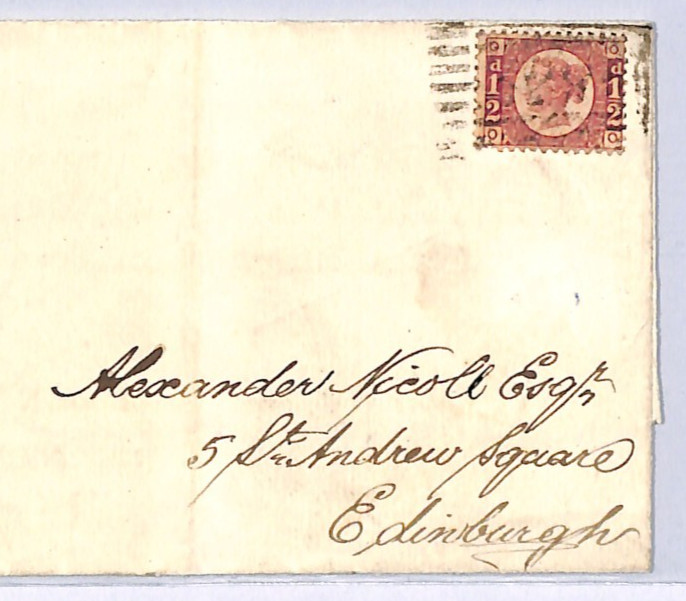 d 1/2 d 1/2
Alexander Nicoll Esqr
5 St. Andrew Square
Edinburgh